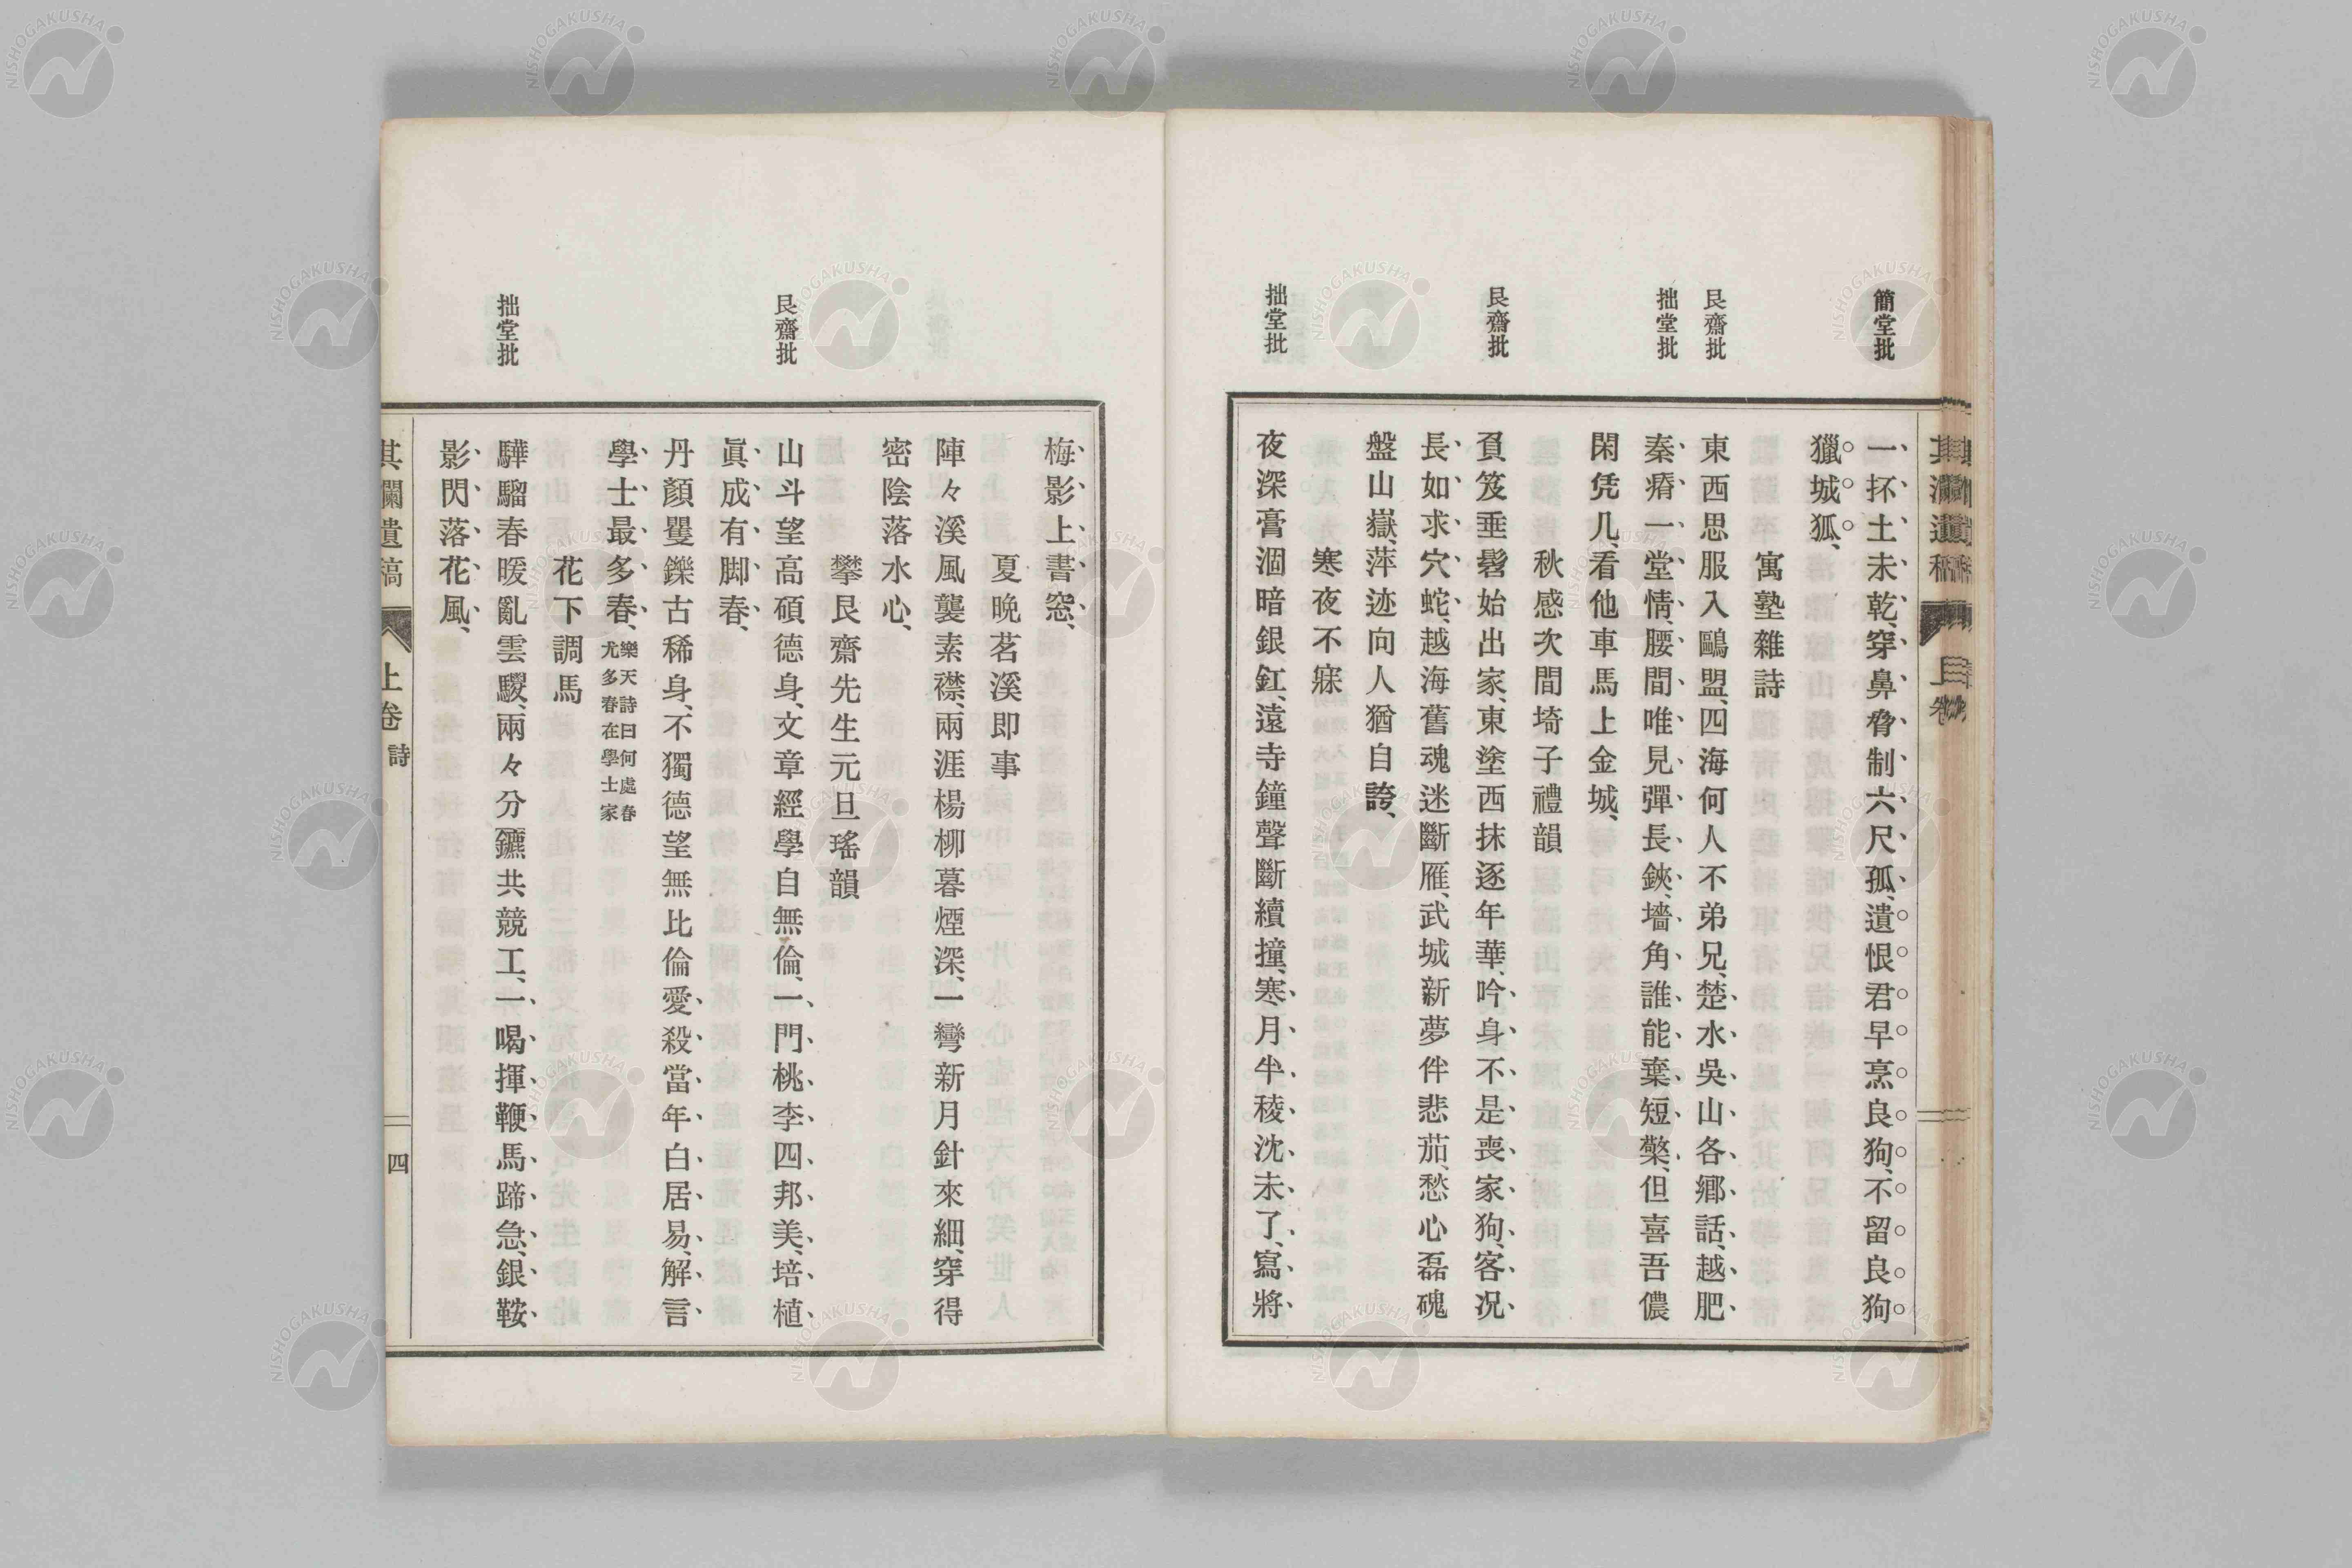 簡堂批
艮齋批
拙堂批
艮齋批
拙堂批
一抔土未乾、穿鼻脅制六尺孤、遺恨君早烹良狗、不留良狗
獵城狐、
寓塾雜詩
東西思服入鷗盟、四海何人不弟兄、楚水吳山各鄉話、越肥
秦瘠一堂情、腰間唯見彈長鋏、墻角誰能棄短檠、但喜吾儂
閑凭几、看他車馬上金城、
秋感次間埼子禮韻
負笈垂髫始出家、東塗西抹逐年華、吟身不是喪家狗、客况
長如求穴蛇、越海舊魂迷斷雁、武城新夢伴悲茄、愁心磊磈
盤山嶽、萍迹向人猶自誇、
寒夜不寐
夜深膏涸暗銀釭、遠寺鐘聲斷續撞、寒月半稜沈未了、寫將
艮齋批
拙堂批
梅影上書窓、
夏晚茗溪即事
陣々溪風襲素襟、兩涯楊柳暮煙深、一彎新月針來細、穿得
密陰落水心、
攀艮齋先生元旦瑤韻
山斗望高碩德身、文章經學自無倫、一門桃李四邦美、培植
眞成有脚春、
丹顏矍鑠古稀身、不獨德望無比倫、愛殺當年白居易、解言
學士最多春、樂天詩曰何處春尤多春在學士家
花下調馬
驊騮春暖亂雲騣、兩々分鑣共競工、一喝揮鞭馬蹄急、銀鞍
影閃落花風、
其瀾遺稿 上卷 詩 四